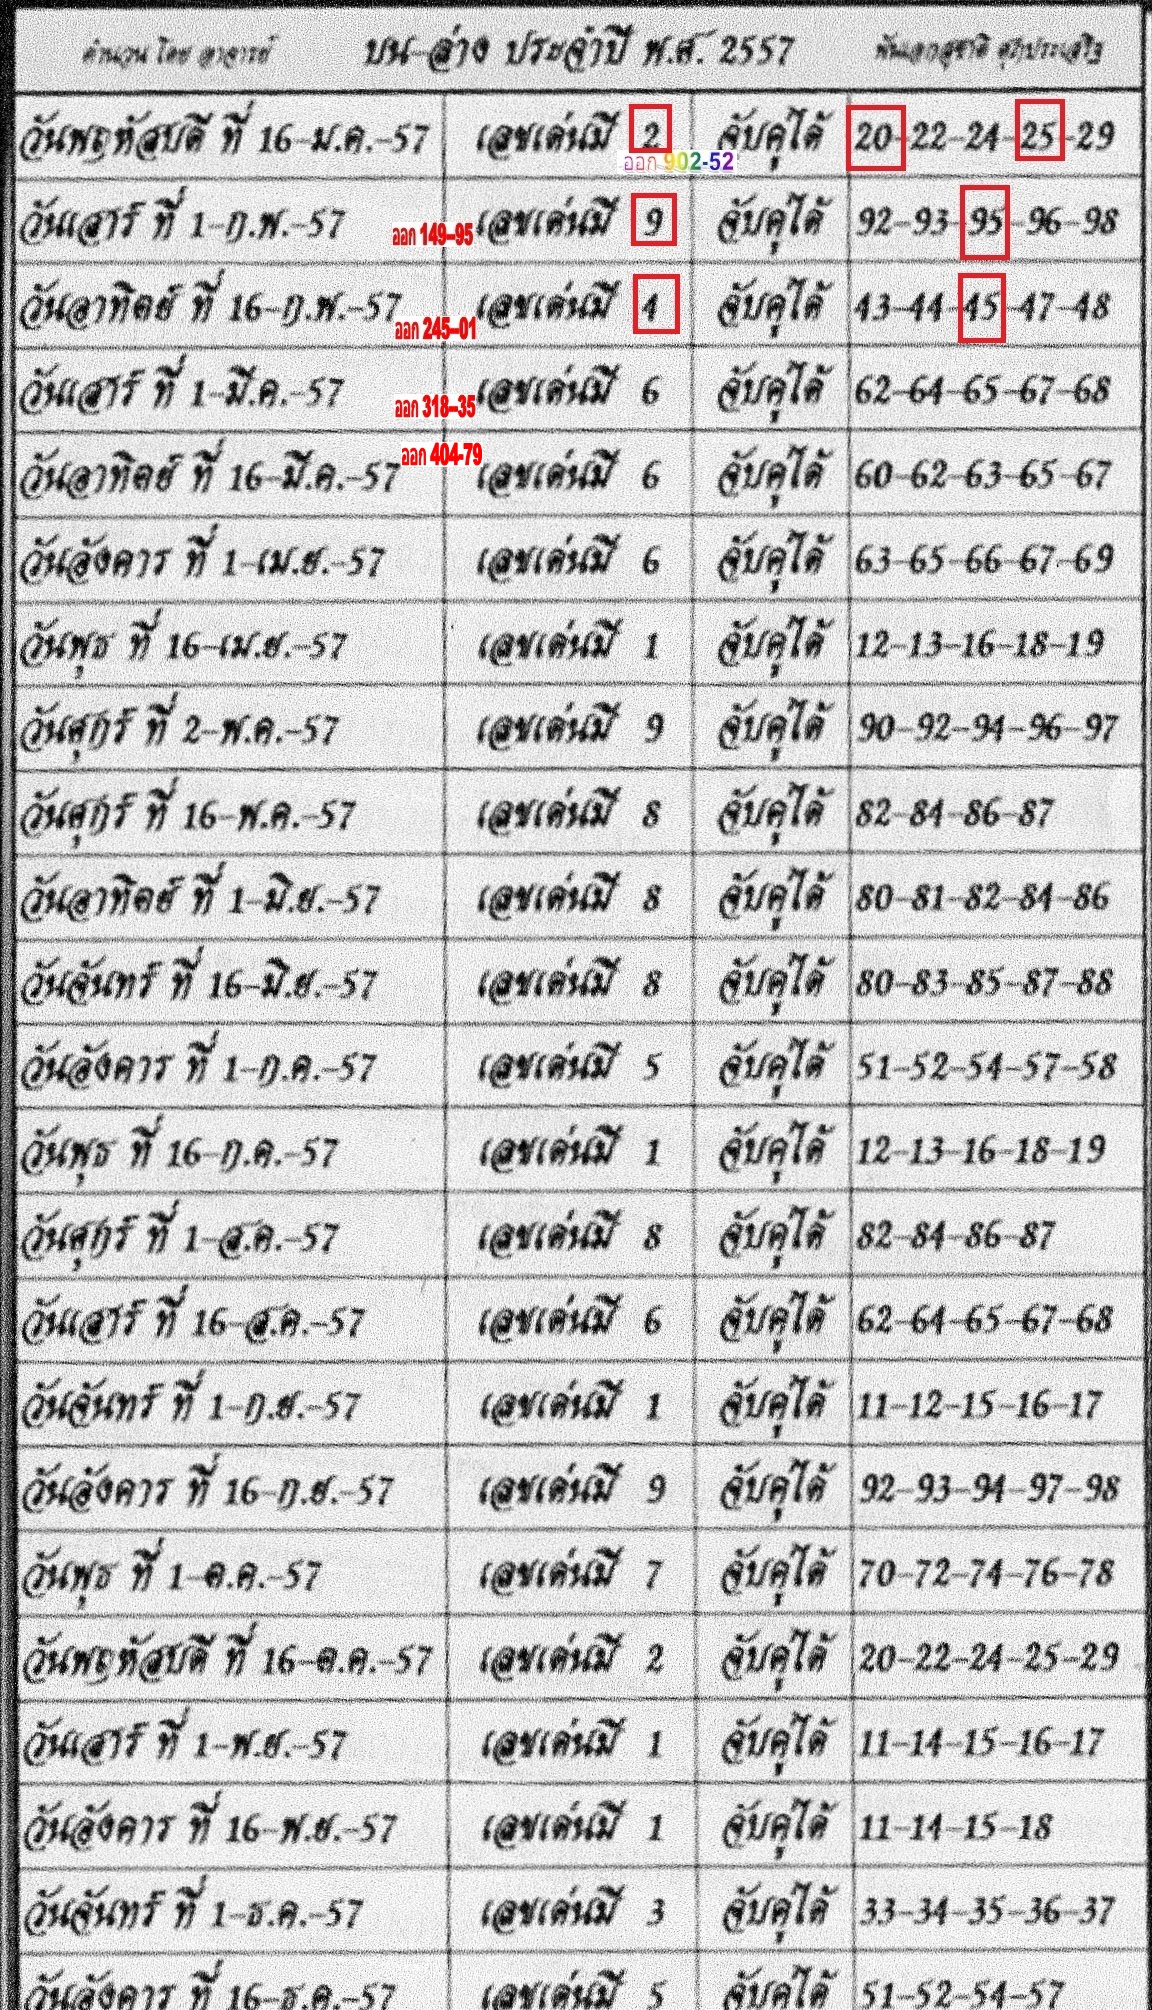 คำนวน โดย อาจารย์ บน-ล่าง ประจำปี พ.ศ. 2557
วันพฤหัสบดี ที่ 16-ม.ค.-57 เลขเด่นมี 2 จับคู่ได้ 20-22-24-25-29
ออก 902-52
วันเสาร์ ที่ 1-ก.พ.-57 ออก 149-95 เลขเด่นมี 9 จับคู่ได้ 92-93-95-96-98
วันอาทิตย์ ที่ 16-ก.พ.-57 ออก 245-01 เลขเด่นมี 4 จับคู่ได้ 43-44-45-47-48
วันเสาร์ ที่ 1-มี.ค.-57 ออก 318-35 เลขเด่นมี 6 จับคู่ได้ 62-64-65-67-68
วันอาทิตย์ ที่ 16-มี.ค.-57 ออก 404-79 เลขเด่นมี 6 จับคู่ได้ 60-62-63-65-67
วันอังคาร ที่ 1-เม.ย.-57 เลขเด่นมี 6 จับคู่ได้ 63-65-66-67-69
วันพุธ ที่ 16-เม.ย.-57 เลขเด่นมี 1 จับคู่ได้ 12-13-16-18-19
วันศุกร์ ที่ 2-พ.ค.-57 เลขเด่นมี 9 จับคู่ได้ 90-92-94-96-97
วันศุกร์ ที่ 16-พ.ค.-57 เลขเด่นมี 8 จับคู่ได้ 82-84-86-87
วันอาทิตย์ ที่ 1-มิ.ย.-57 เลขเด่นมี 8 จับคู่ได้ 80-81-82-84-86
วันจันทร์ ที่ 16-มิ.ย.-57 เลขเด่นมี 8 จับคู่ได้ 80-83-85-87-88
วันอังคาร ที่ 1-ก.ค.-57 เลขเด่นมี 5 จับคู่ได้ 51-52-54-57-58
วันพุธ ที่ 16-ก.ค.-57 เลขเด่นมี 1 จับคู่ได้ 12-13-16-18-19
วันศุกร์ ที่ 1-ส.ค.-57 เลขเด่นมี 8 จับคู่ได้ 82-84-86-87
วันเสาร์ ที่ 16-ส.ค.-57 เลขเด่นมี 6 จับคู่ได้ 62-64-65-67-68
วันจันทร์ ที่ 1-ก.ย.-57 เลขเด่นมี 1 จับคู่ได้ 11-12-15-16-17
วันอังคาร ที่ 16-ก.ย.-57 เลขเด่นมี 9 จับคู่ได้ 92-93-94-97-98
วันพุธ ที่ 1-ต.ค.-57 เลขเด่นมี 7 จับคู่ได้ 70-72-74-76-78
วันพฤหัสบดี ที่ 16-ต.ค.-57 เลขเด่นมี 2 จับคู่ได้ 20-22-24-25-29
วันเสาร์ ที่ 1-พ.ย.-57 เลขเด่นมี 1 จับคู่ได้ 11-14-15-16-17
วันอังคาร ที่ 16-พ.ย.-57 เลขเด่นมี 1 จับคู่ได้ 11-14-15-18
วันจันทร์ ที่ 1-ธ.ค.-57 เลขเด่นมี 3 จับคู่ได้ 33-34-35-36-37
วันอังคาร ที่ 16-ธ.ค.-57 เลขเด่นมี 5 จับคู่ได้ 51-52-54-57